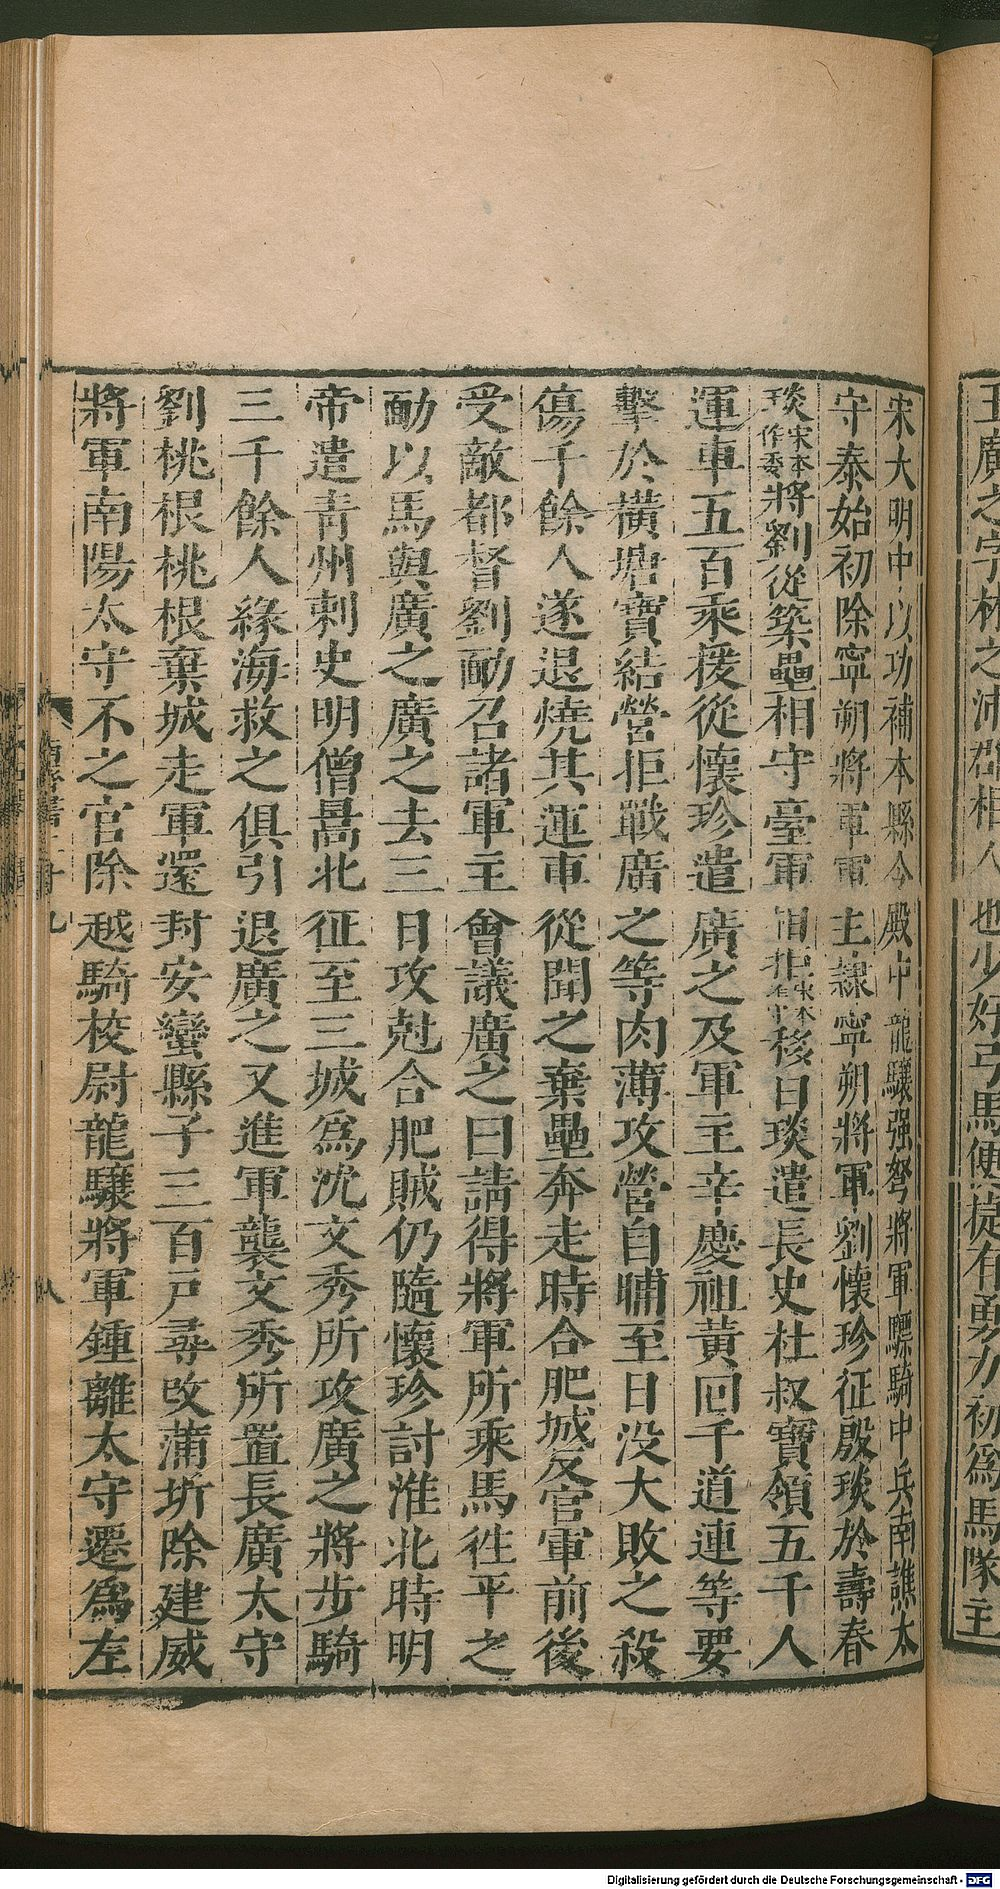 宋大明中以功補本縣令殿中龍驤強弩將軍驃騎中兵南譙太
守泰始初除寧朔將軍軍主隸寧朔將軍劉懷珍征殷琰於壽春
琰宋本作委將劉從築壘相守臺軍相拒移日琰遣長史杜叔寶領五千人
運車五百乘援從懷珍遣廣之及軍主辛慶祖黃回千道連等要
擊於橫塘寶結營拒戰廣之等肉薄攻營自晡至日没大敗之殺
傷千餘人遂退燒其運車從聞之棄壘奔走時合肥城反官軍前後
受敵都督劉勔召諸軍主會議廣之曰請得將軍所乘馬徃平之
勔以馬與廣之廣之去三日攻尅合肥賊仍隨懷珍討淮北時明
帝遣青州刺史明僧暠北征至三城爲沈文秀所攻廣之將步騎
三千餘人緣海救之俱引退廣之又進軍襲文秀所置長廣太守
劉桃根桃根棄城走軍還封安蠻縣子三百戸尋改蒲圻除建威
將軍南陽太守不之官除越騎校尉龍驤將軍鍾離太守遷爲左
王廣之字林之沛郡相人也少好弓馬便捷有勇力初爲馬隊主
Digitalisierung gefördert durch die Deutsche Forschungsgemeinschaft - DFG